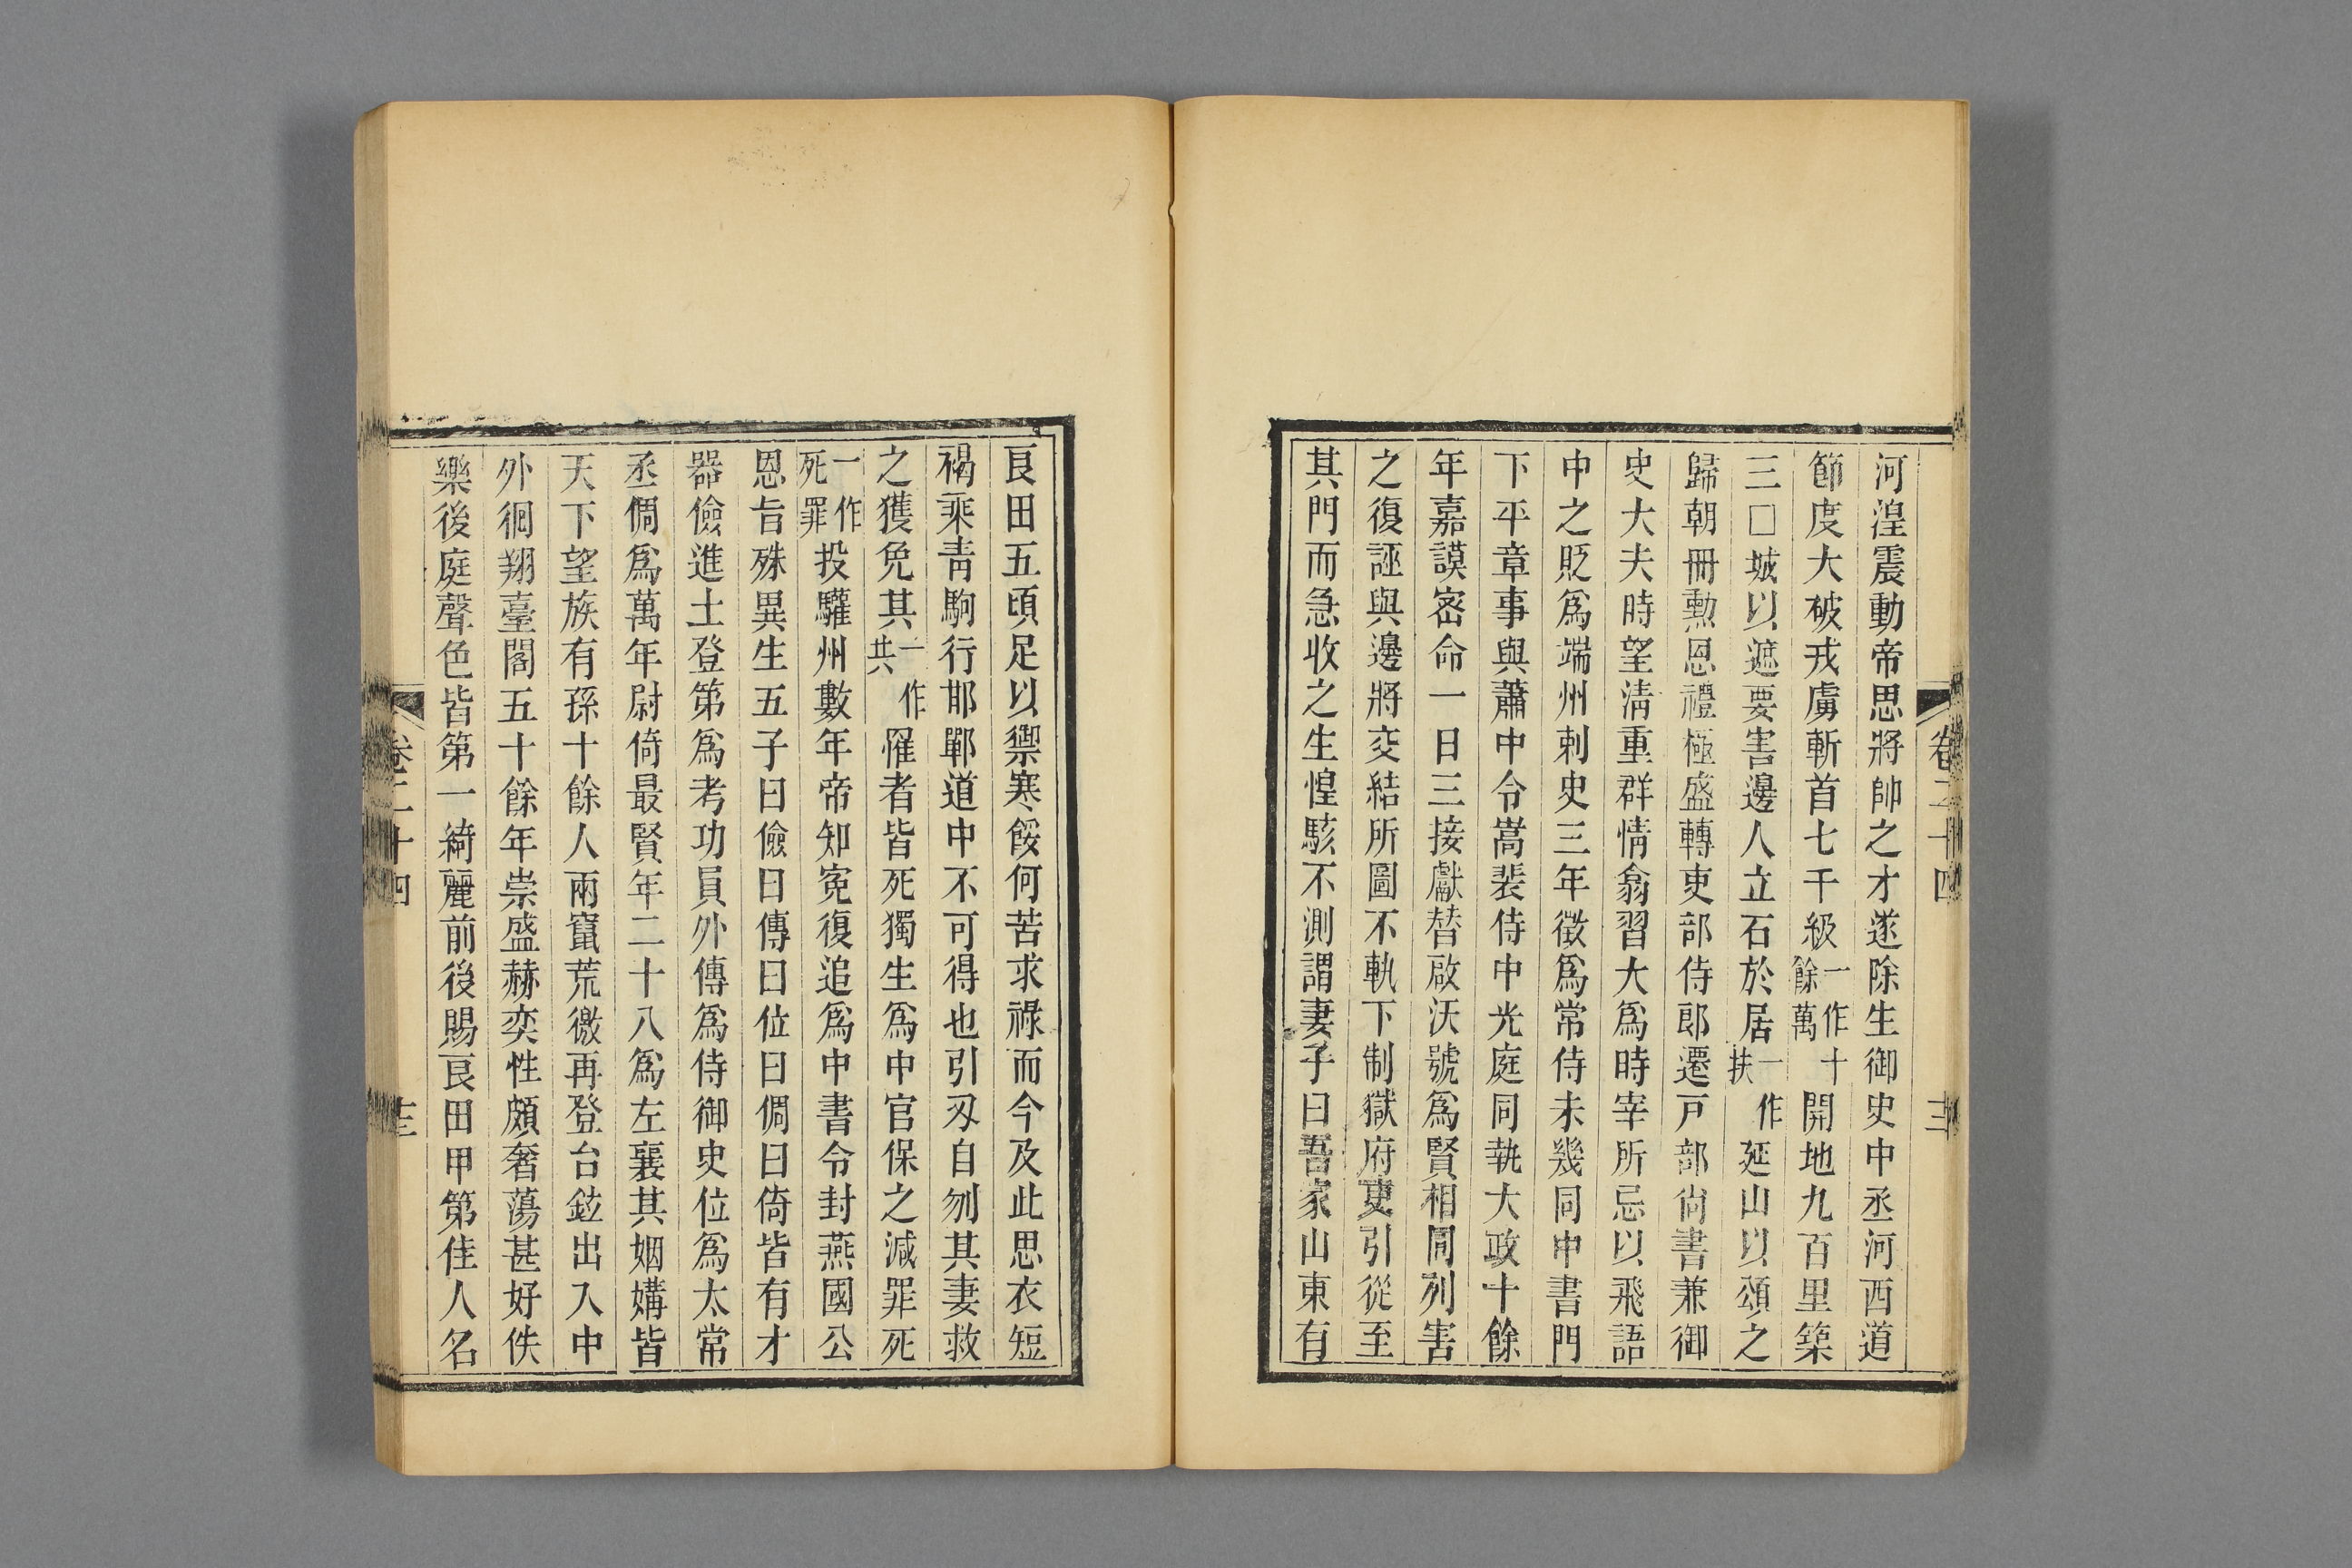 河湟震動帝思將帥之才遂除生御史中丞河西道
節度大破戎虜斬首七千級一作十餘萬開地九百里築
三□城以遮要害邊人立石於居一作扶延山以頌之
歸朝冊勲恩禮極盛轉吏部侍郎遷戸部尚書兼御
史大夫時望淸重群情翕習大爲時宰所忌以飛語
中之貶爲端州刺史三年徵爲常侍未幾同中書門
下平章事與蕭中令嵩裴侍中光庭同執大政十餘
年嘉謨密命一日三接獻替啟沃號爲賢相同列害
之復誣與邊將交結所圖不軌下制獄府吏引從至
其門而急收之生惶駭不測謂妻子曰吾家山東有
卷二十四
十三
良田五頃足以禦寒餒何苦求祿而今及此思衣短
褐乘靑駒行邯鄲道中不可得也引刃自刎其妻救
之獲免其一作共罹者皆死獨生爲中官保之減罪死
一作死罪投驩州數年帝知寃復追爲中書令封燕國公
恩旨殊異生五子曰儉曰傳曰位曰倜曰倚皆有才
器儉進士登第爲考功員外傳爲侍御史位爲太常
丞倜爲萬年尉倚最賢年二十八爲左襄其姻媾皆
天下望族有孫十餘人兩竄荒徼再登台鉉出入中
外徊翔臺閣五十餘年崇盛赫奕性頗奢蕩甚好佚
樂後庭聲色皆第一綺麗前後賜良田甲第佳人名
卷二十四
十三